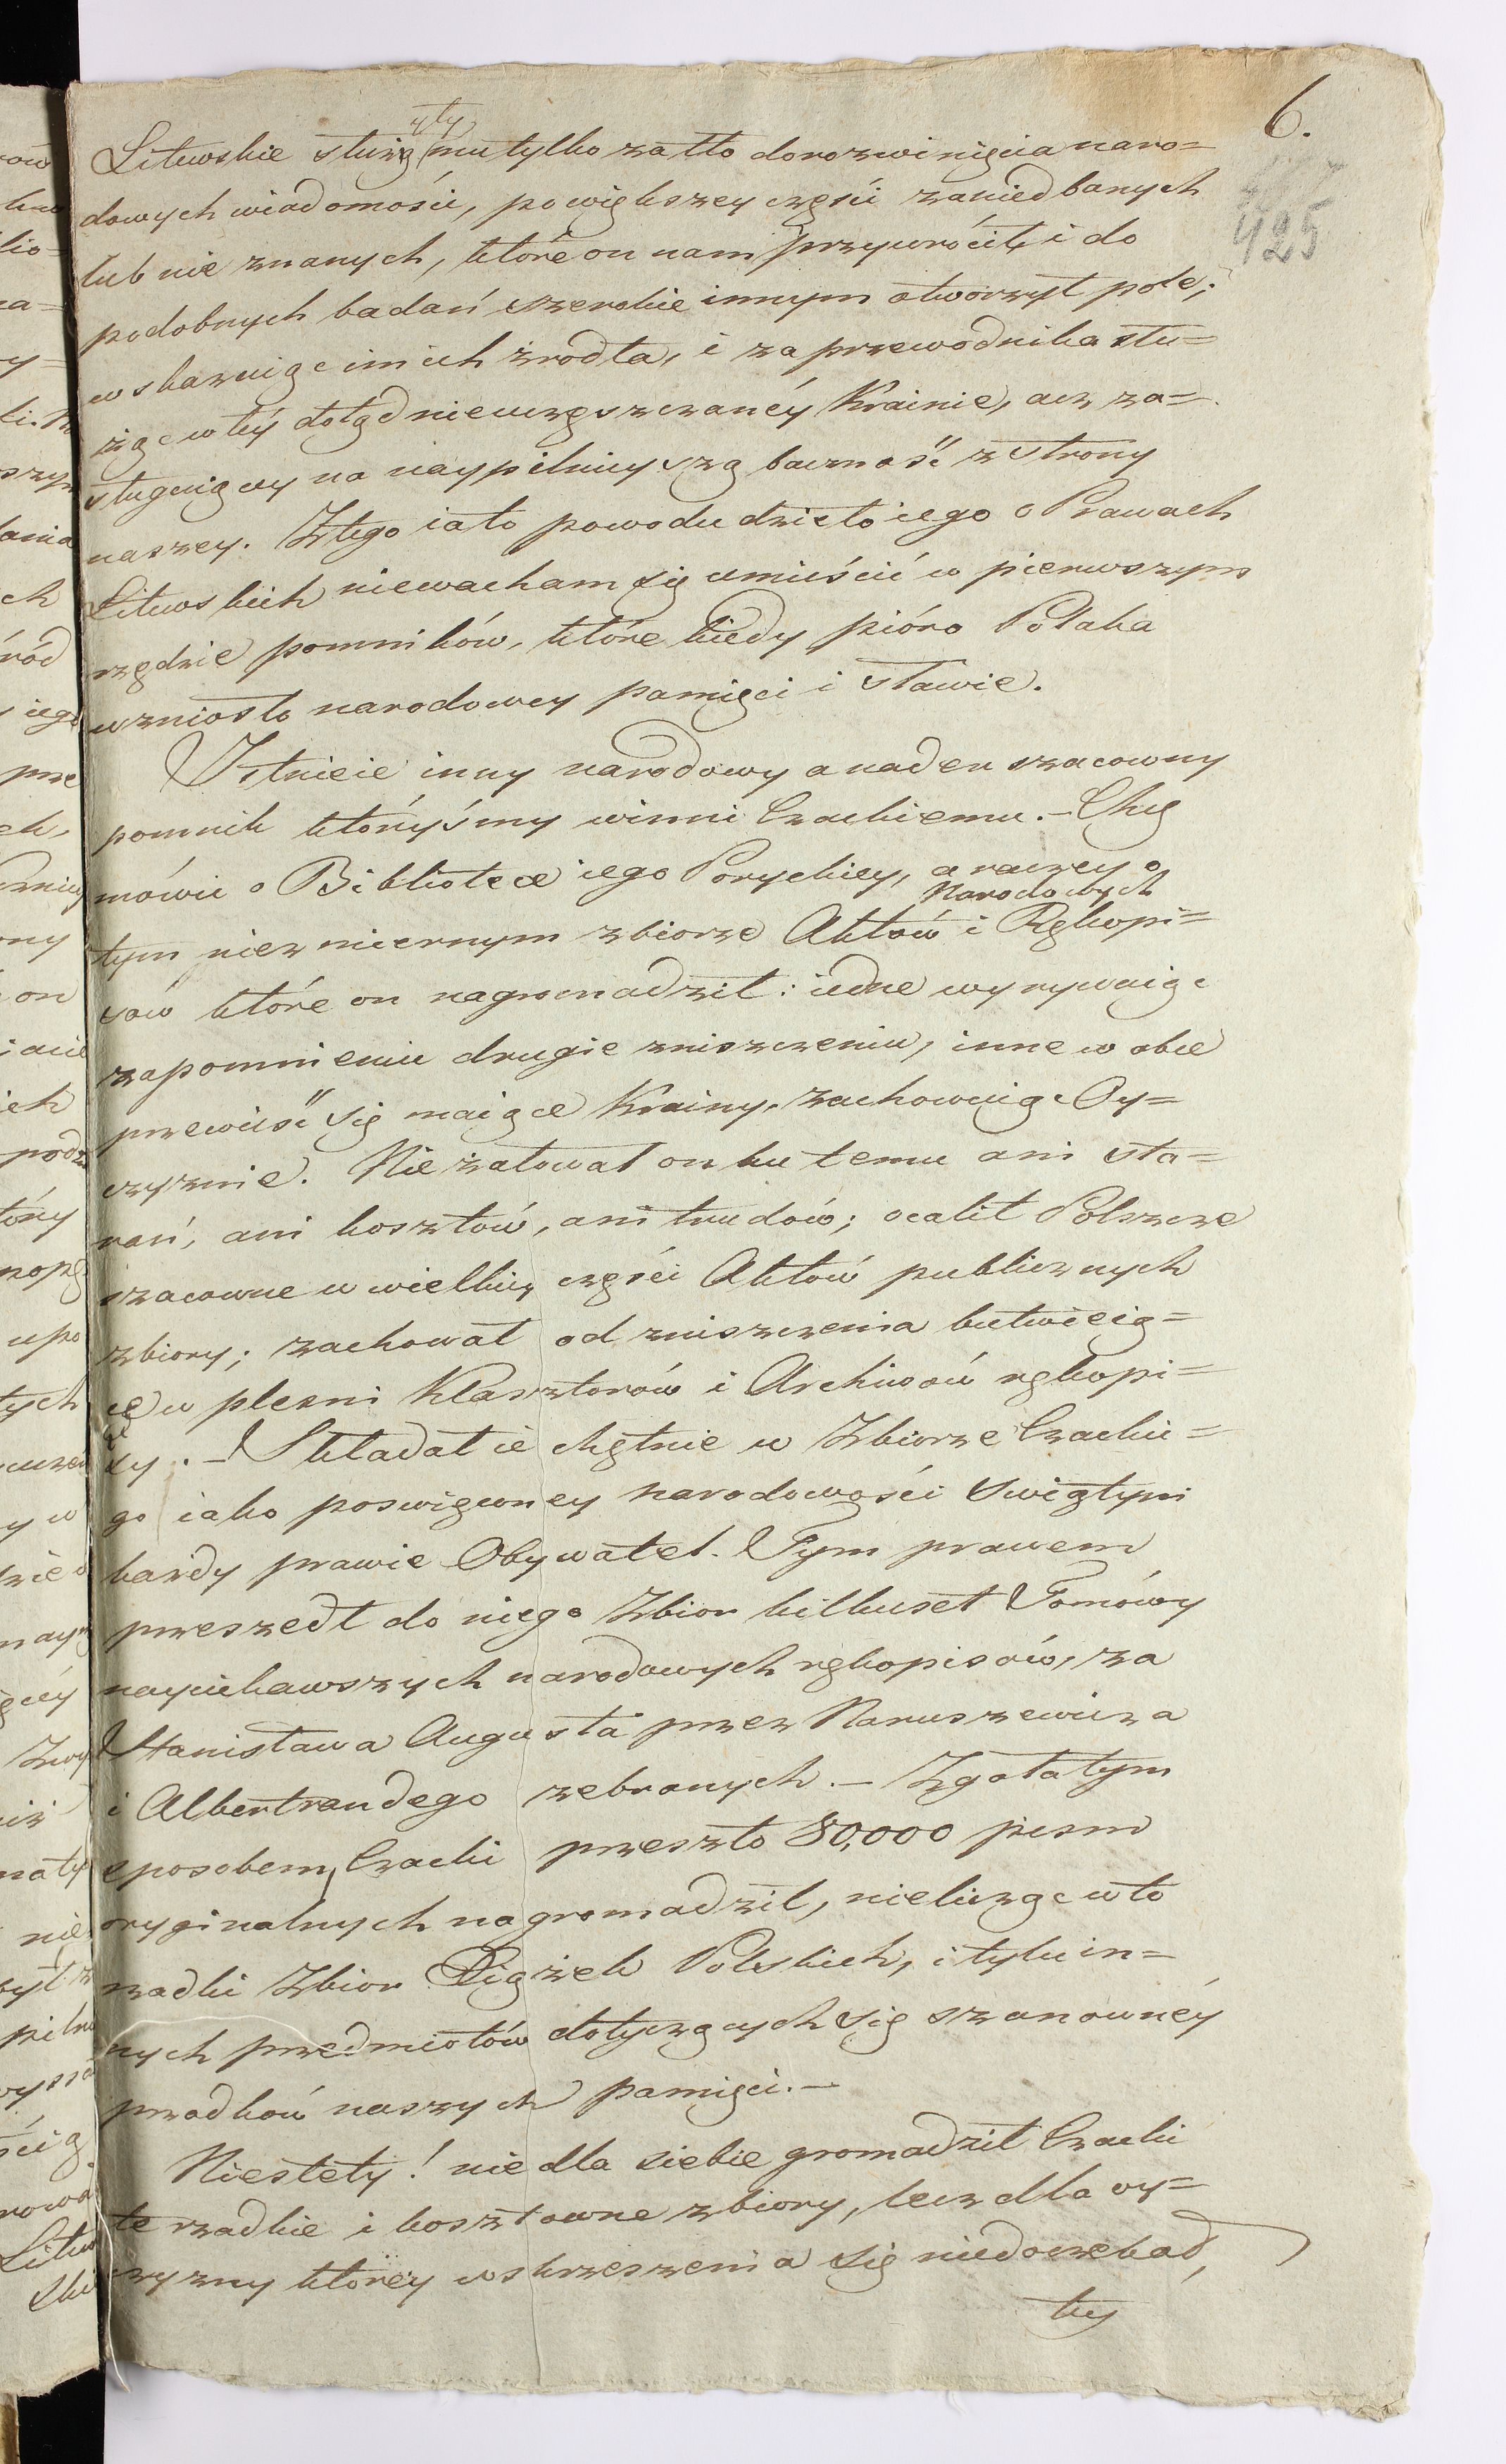 6.
425
yły
Litewskie służą mu tylko za tło do rozwinięcia naro=
dowych wiadomości, po większey części zaniedbanych
lub nie znanych, które on nam przywrócił, i do
podobnych badań szerokie innym otworzył pole;
wskazuiąc im ich źrodła, i za przewodnika słu=
żąc w téy dotąd nieuczęszczanéy Krainie, acz za=
sługuiącey na naypilnieyszą baczność z strony
naszey. Z tego iato powodu dzieło iego o Prawach
Litewskich niewacham się umieścić w pierwszym
rzędzie pomników, które kiedy pióro Polaka
wzniosło narodowey pamięci i sławie.
Istnieie inny narodowy a nader szacowny
pomnik któryśmy winni Czackiemu. – Chcę
mówić o Bibliotece iego Poryckiey, a raczey o
Narodowych
tym niezmiernym zbiorze Aktów i Rękopi=
sów które on nagromadził: iedne wyrywaiąc
zapomnieniu drugie zniszczeniu, inne w obce
przewieść się maiące Krainy, zachowuiąc Oy=
czyznie. Nie żałował on ku temu ani sta=
rań, ani kosztów, ani trudów; ocalił Polszcze
szacowne w wielkiey części Aktów publicznych
zbiory; zachował od zniszczenia butwieią=
ce w plesni Klasztorów i Archiwów rękopi=
sy. – Składał ie chętnie w Zbiorze Czackie=
go iako poswięconey narodowości swiątyni
każdy prawie Obywatel. Tym prawem
przeszedł do niego Zbior kilkuset Tomówy
nayciekawszych narodowych rękopisów, za
Stanisława Augusta przez Naruszewicza
i Albertrandego zebranych. – Zgoła tym
sposobem, Czacki przeszło 80,000 pism
oryginalnych nagromadził, nielicząc w to
rzadki Zbior Xiążek Polskich, i tylu in=
nych przedmiotów dotyczących się szanownéy
przodków naszych pamięci. –
Niestety! nie dla siebie gromadził Czacki
te rzadkie i kosztowne zbiory, lecz dla oy=
czyzny którey wskrzeszenia się niedoczekał,